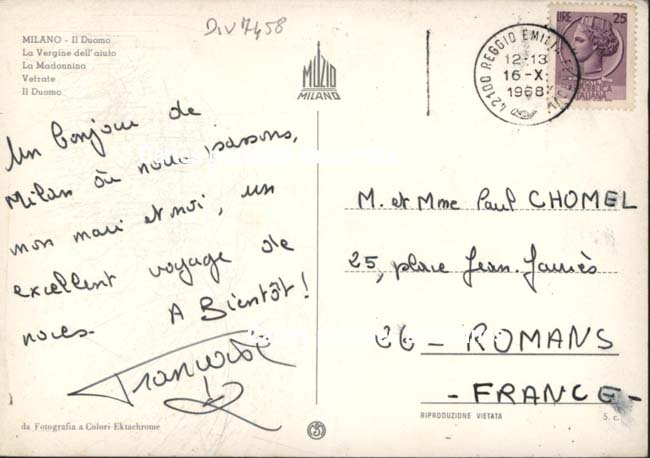 DIV 7458
MILANO - Il Duomo
La Vergine dell'aiuto
La Madonnina
Vetrate
Il Duomo
MUZIO
MILANO
42100 REGGIO EMILIA
12-13
16-X.
1968
LIRE 25
REPUBBLICA
ITALIANA
Un bonjour de
Milan où nous passons,
mon mari et moi, un
excellent voyage de
noces. A Bientôt!
M. et Mme Paul CHOMEL
25, place Jean-Jaurès
26 - ROMANS
- FRANCE -
da Fotografia a Colori Ektachrome
RIPRODUZIONE VIETATA
S. c.